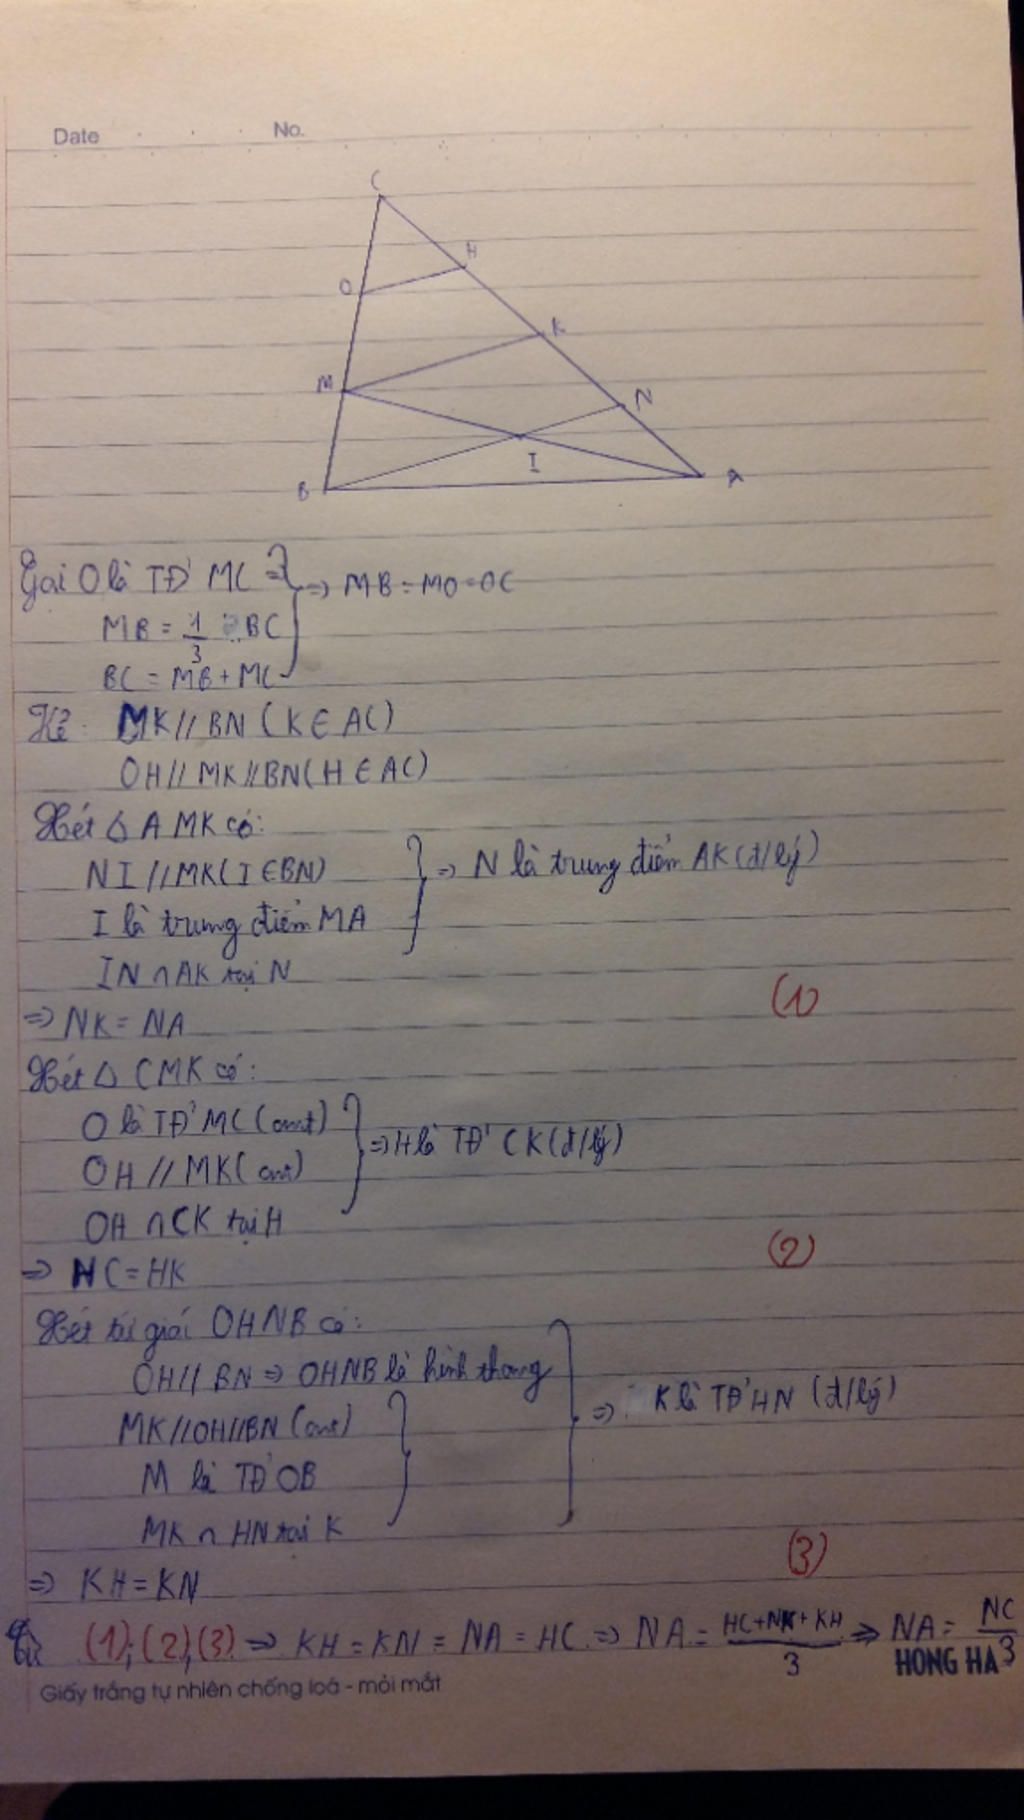 Date No.
C
H
O
K
M
N
I
B
A
Gọi O là TĐ' MC =>
=> MB = MO = OC
MB = 1/3 BC
BC = MB + MC
Kẻ: MK // BN (K ∈ AC)
OH // MK // BN (H ∈ AC)
Xét △ AMK có:
NI // MK (I ∈ BN)
=> N là trung điểm AK (đ/lý)
I là trung điểm MA
IN ∩ AK tại N
(1)
=> NK = NA
Xét △ CMK có:
O là TĐ' MC (cmt)
=> H là TĐ' CK (đ/lý)
OH // MK (cmt)
OH ∩ CK tại H
(2)
=> HC = HK
Xét tứ giác OHNB có:
OH // BN => OHNB là hình thang
=> K là TĐ' HN (đ/lý)
MK // OH // BN (cmt)
M là TĐ' OB
MK ∩ HN tại K
(3)
=> KH = KN
Từ (1); (2), (3) => KH = KN = NA = HC => NA = HC + NK + KH / 3 => NA = NC / 3
HONG HA
Giấy trắng tự nhiên chống loá - mỏi mắt